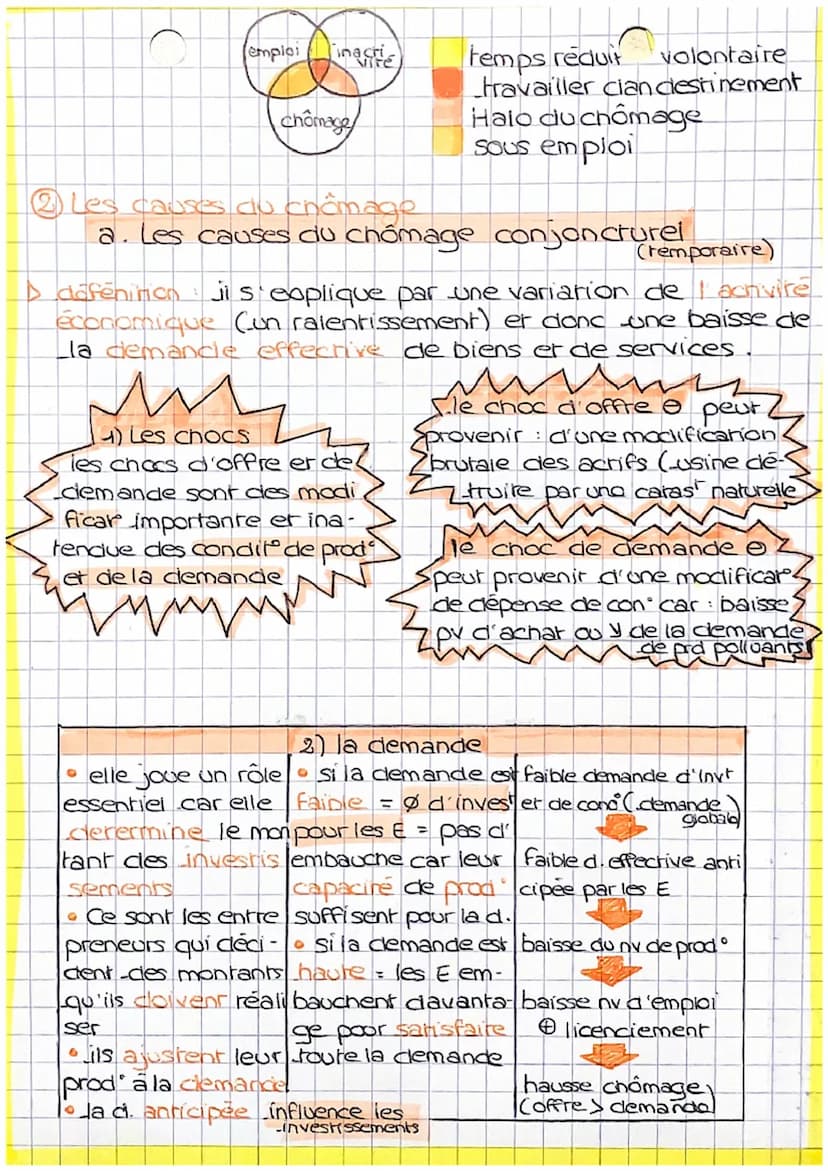 emploi
inacti
vité
chômage
temps réduit volontaire
travailler clandestinement
Halo du chômage
sous emploi
② Les causes du chômage
a. Les causes du chômage conjoncturel
(temporaire)
▷ défénition : il s'explique par une variation de l'activité
économique (un ralentissement) et donc une baisse de
la demande effective de biens et de services.
1) Les chocs
les chocs d'offre et de
demande sont des modi
ficat° importante et ina-
tendue des condit° de prod°
et de la demande
le choc d'offre ⊖ peut
provenir : d'une modification
brutale des actifs (usine dé-
truite par una catast naturelle
le choc de demande ⊖
peut provenir d'une modificat°
de dépense de con° car : baisse
pv d'achat ou ↘ de la demande
de prd polluants
2) la demande
• elle joue un rôle
essentiel car elle
determine le mon
tant des investis
sements
• Ce sont les entre
preneurs qui déci-
dent des montants
qu'ils doivent réali
ser
• ils ajustent leur
prod° à la demande
• la d. anticipée influence les
investissements
• si la demande est
faible = Ø d'invest
pour les E = pas d'
embauche car leur
capacité de prod°
suffisent pour la d.
• si la demande est
haute = les E em-
bauchent davanta-
ge pour satisfaire
toute la demande
faible demande d'invt
et de cons° (demande
globale)
faible d. effective anti
cipée par les E
baisse du nv de prod°
baisse nv d'emploi
⊕ licenciement
hausse chômage
(offre > demande)